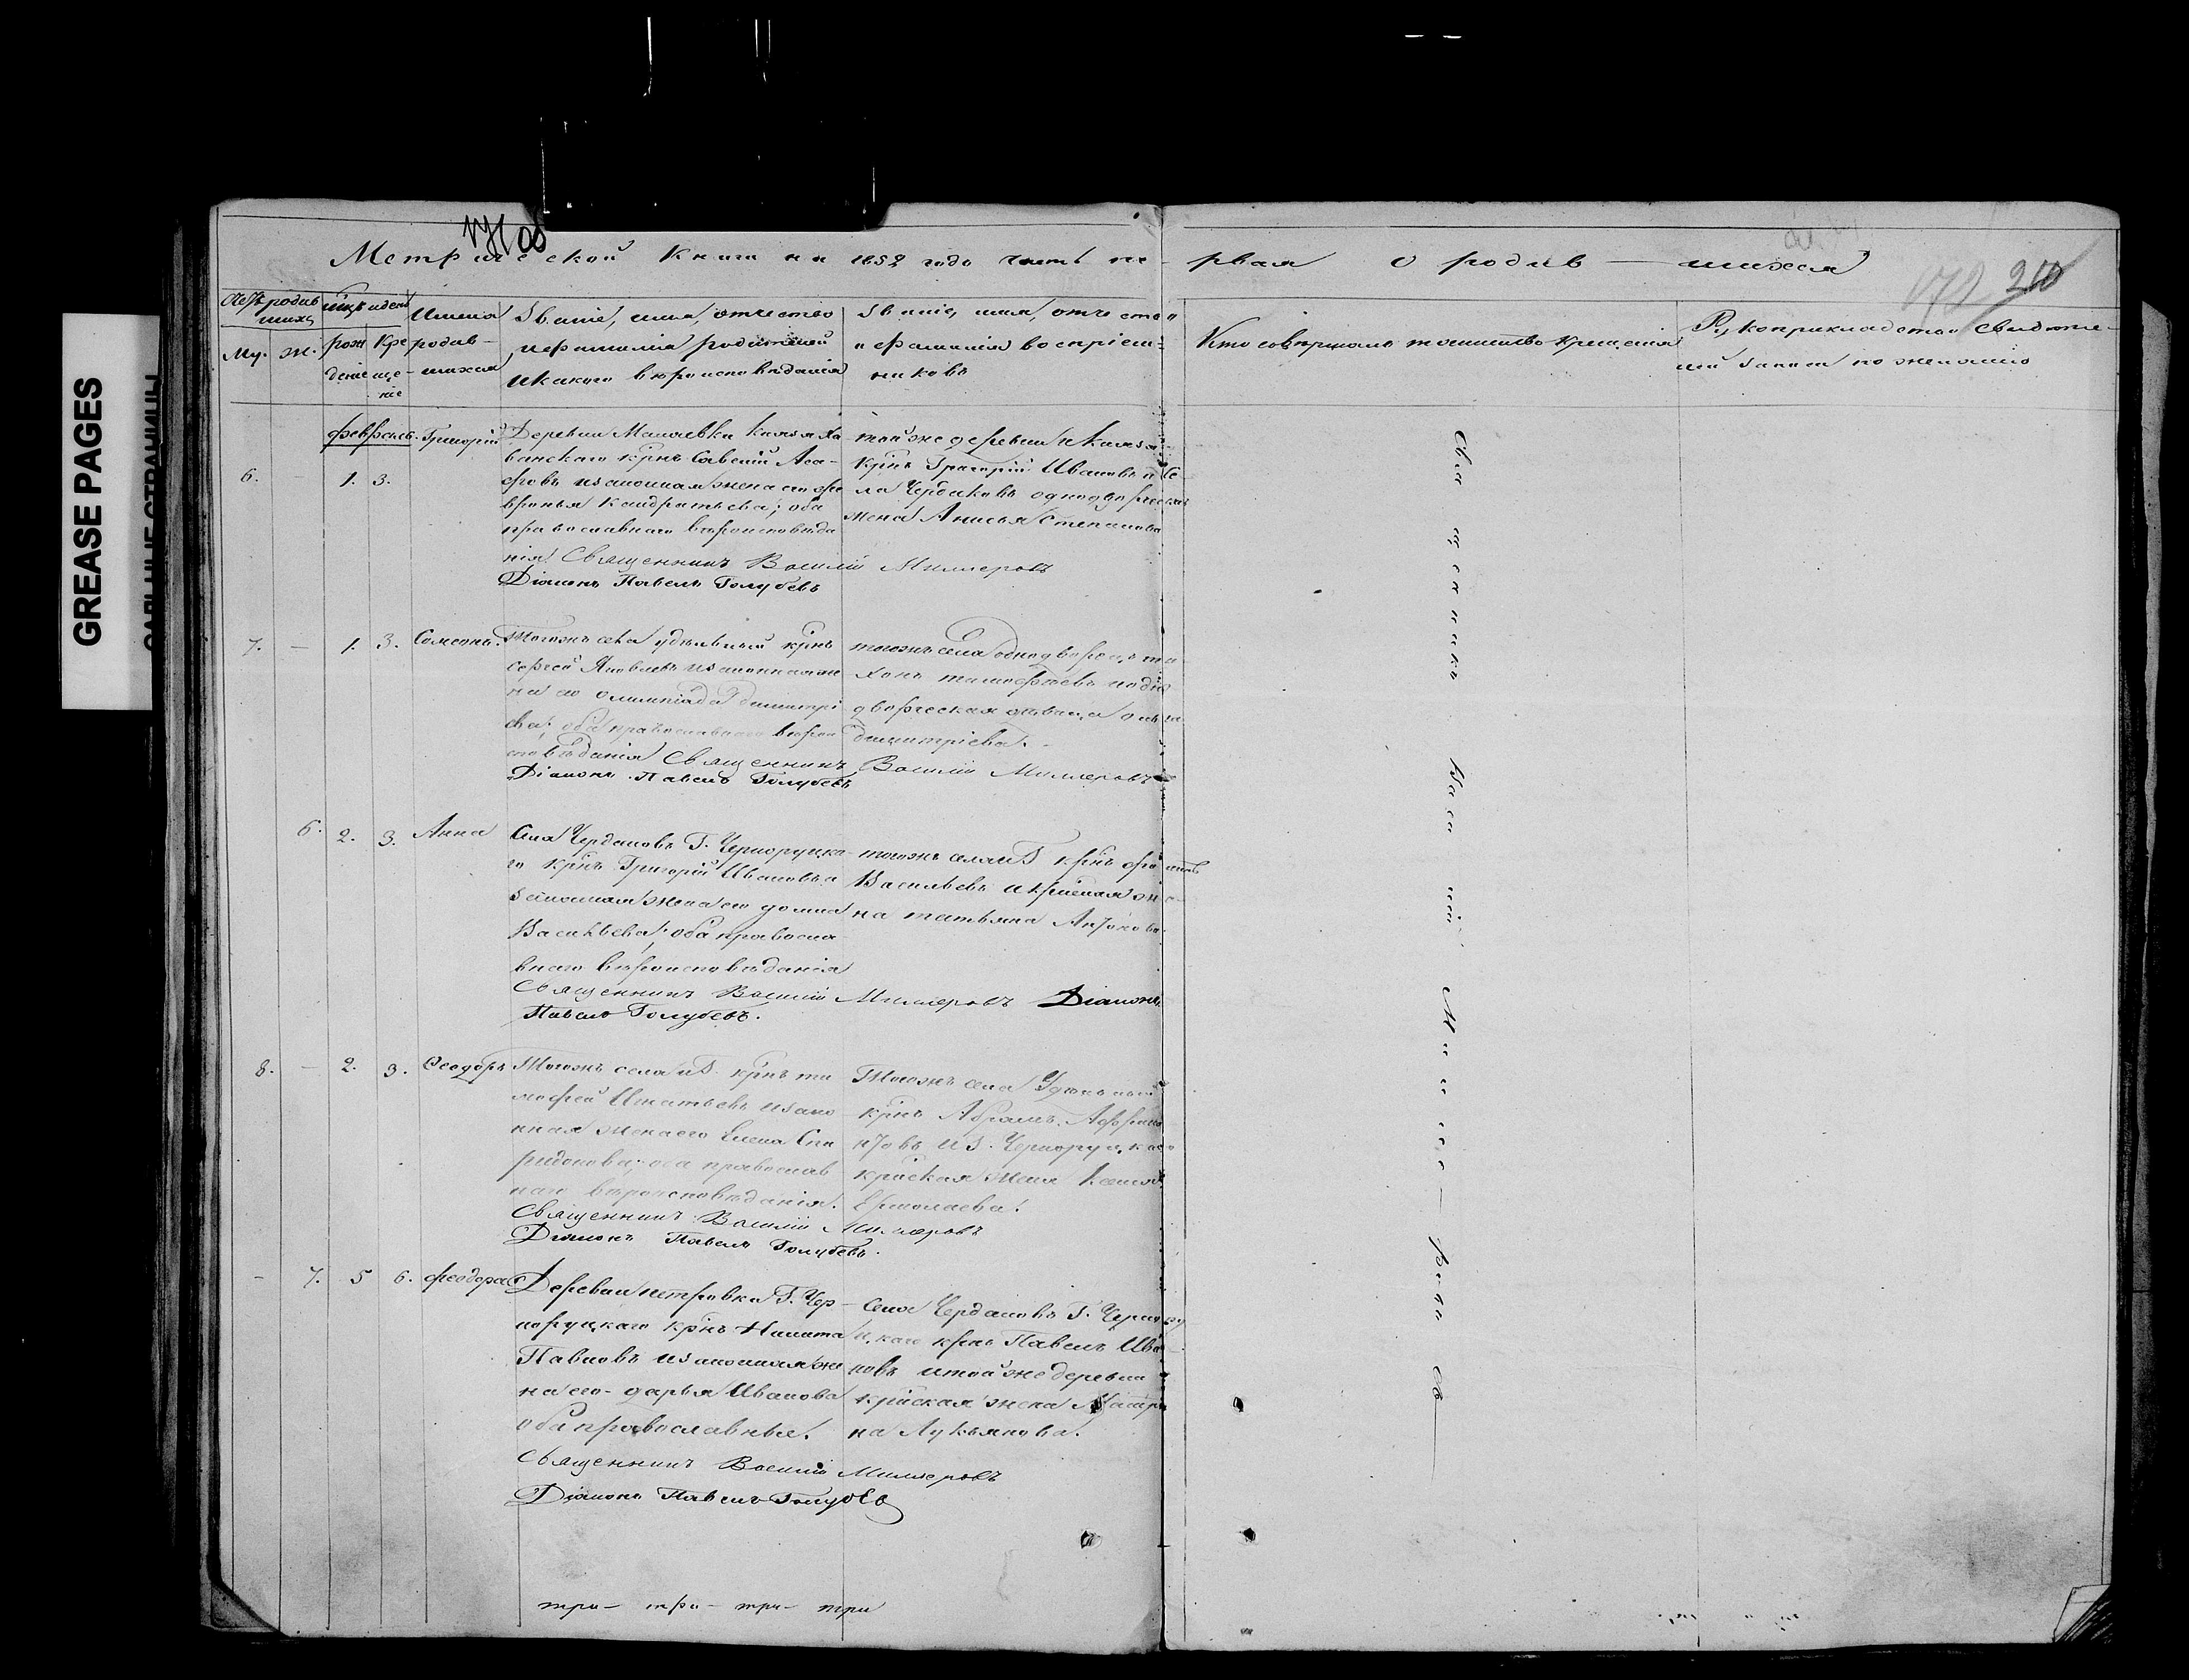 GREASE PAGES
Метрической Книги на 1852 годъ часть пе-рвая о родив-шихся
210
родив шихъ
Му. Ж.
рож дение
Кре ще ніе
Имена родив- шихся
Званіе, имя, отчество и фамилія родителей и какого вѣроисповѣданія
Званіе, имя, отчество и фамилія воспріем-никовъ
Кто совершалъ таинство крещенія
Рукоприкладство свидѣте-лей записи по желанію
февраль
6. - 1. 3. Григорій
Деревни Князя Хо
ванскаго крнъ Савелій Ага-
фовъ изаконная жена его Фе
вронья Кандратьева; оба
православнаго вѣроисповѣда
нія. Священникъ Василій Миллеровъ
Діаконъ Павелъ Голубевъ
той же деревни Князя
Крнъ Григорій Ивановъ и Се-
ла Чердаковъ однодворческая
жена Анисья Степанова
7. - 1. 3. Самсонъ.
Тогожъ села удѣльный крнъ
Сергей Яковлевъ изаконная же
на его Олимпіада Димитрі
ева; оба православнаго вѣрои
сповѣданія Священникъ Василій Миллеровъ
Діаконъ Павелъ Голубевъ
тогожъ села однодворецъ Ти
хонъ Тимофѣевъ и одно
дворческая дѣвица
Димитріева.
6. 2. 3. Анна
Села Чердаковъ Г. Черноруцка-
го крнъ Григорій Ивановъ и
законная жена его Домна
Васильева; оба правосла
внаго вѣроисповѣданія
Священникъ Василій Миллеровъ Діаконъ
Павелъ Голубевъ.
тогожъ села и Г. крнъ
Васильевъ и крнская же
на Татьяна Антонова
8. - 2. 3. Ѳеодоръ
Тогожъ села и Г. крнъ Ти
мофей Игнатьевъ изако
нная жена его Елена Спи
ридонова; оба православ
наго вѣроисповѣданія.
Священникъ Василій Миллеровъ
Діаконъ Павелъ Голубевъ.
Тогожъ села Удѣльный
крнъ Абрамъ
и Г. Черноруцкаго
крнская жена Ксенія
Ермолаева.
- 7. 5 6. Феодора
Деревни Петровки Г. Чер-
норуцкаго крнъ Никита
Павловъ изаконная же
на его Дарья Иванова
оба православные.
Священникъ Василій Миллеровъ
Діаконъ Павелъ Голубев
Села Чердаковъ Г. Чернору
цкаго крнъ Павелъ Ива
новъ и той же деревни
крнская жена Матре
на Лукьянова.
Священникъ Василій Миллеровъ
три- три- три- три